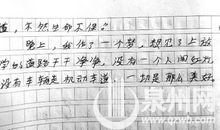 道，不然豆都不保。”
晚上，我作了一个梦，梦见了上放
学的道路干干净净，没有一个人闯红灯，
没有车辆走机动车道，一切是那么美好。
泉州网
www.qzwb.com